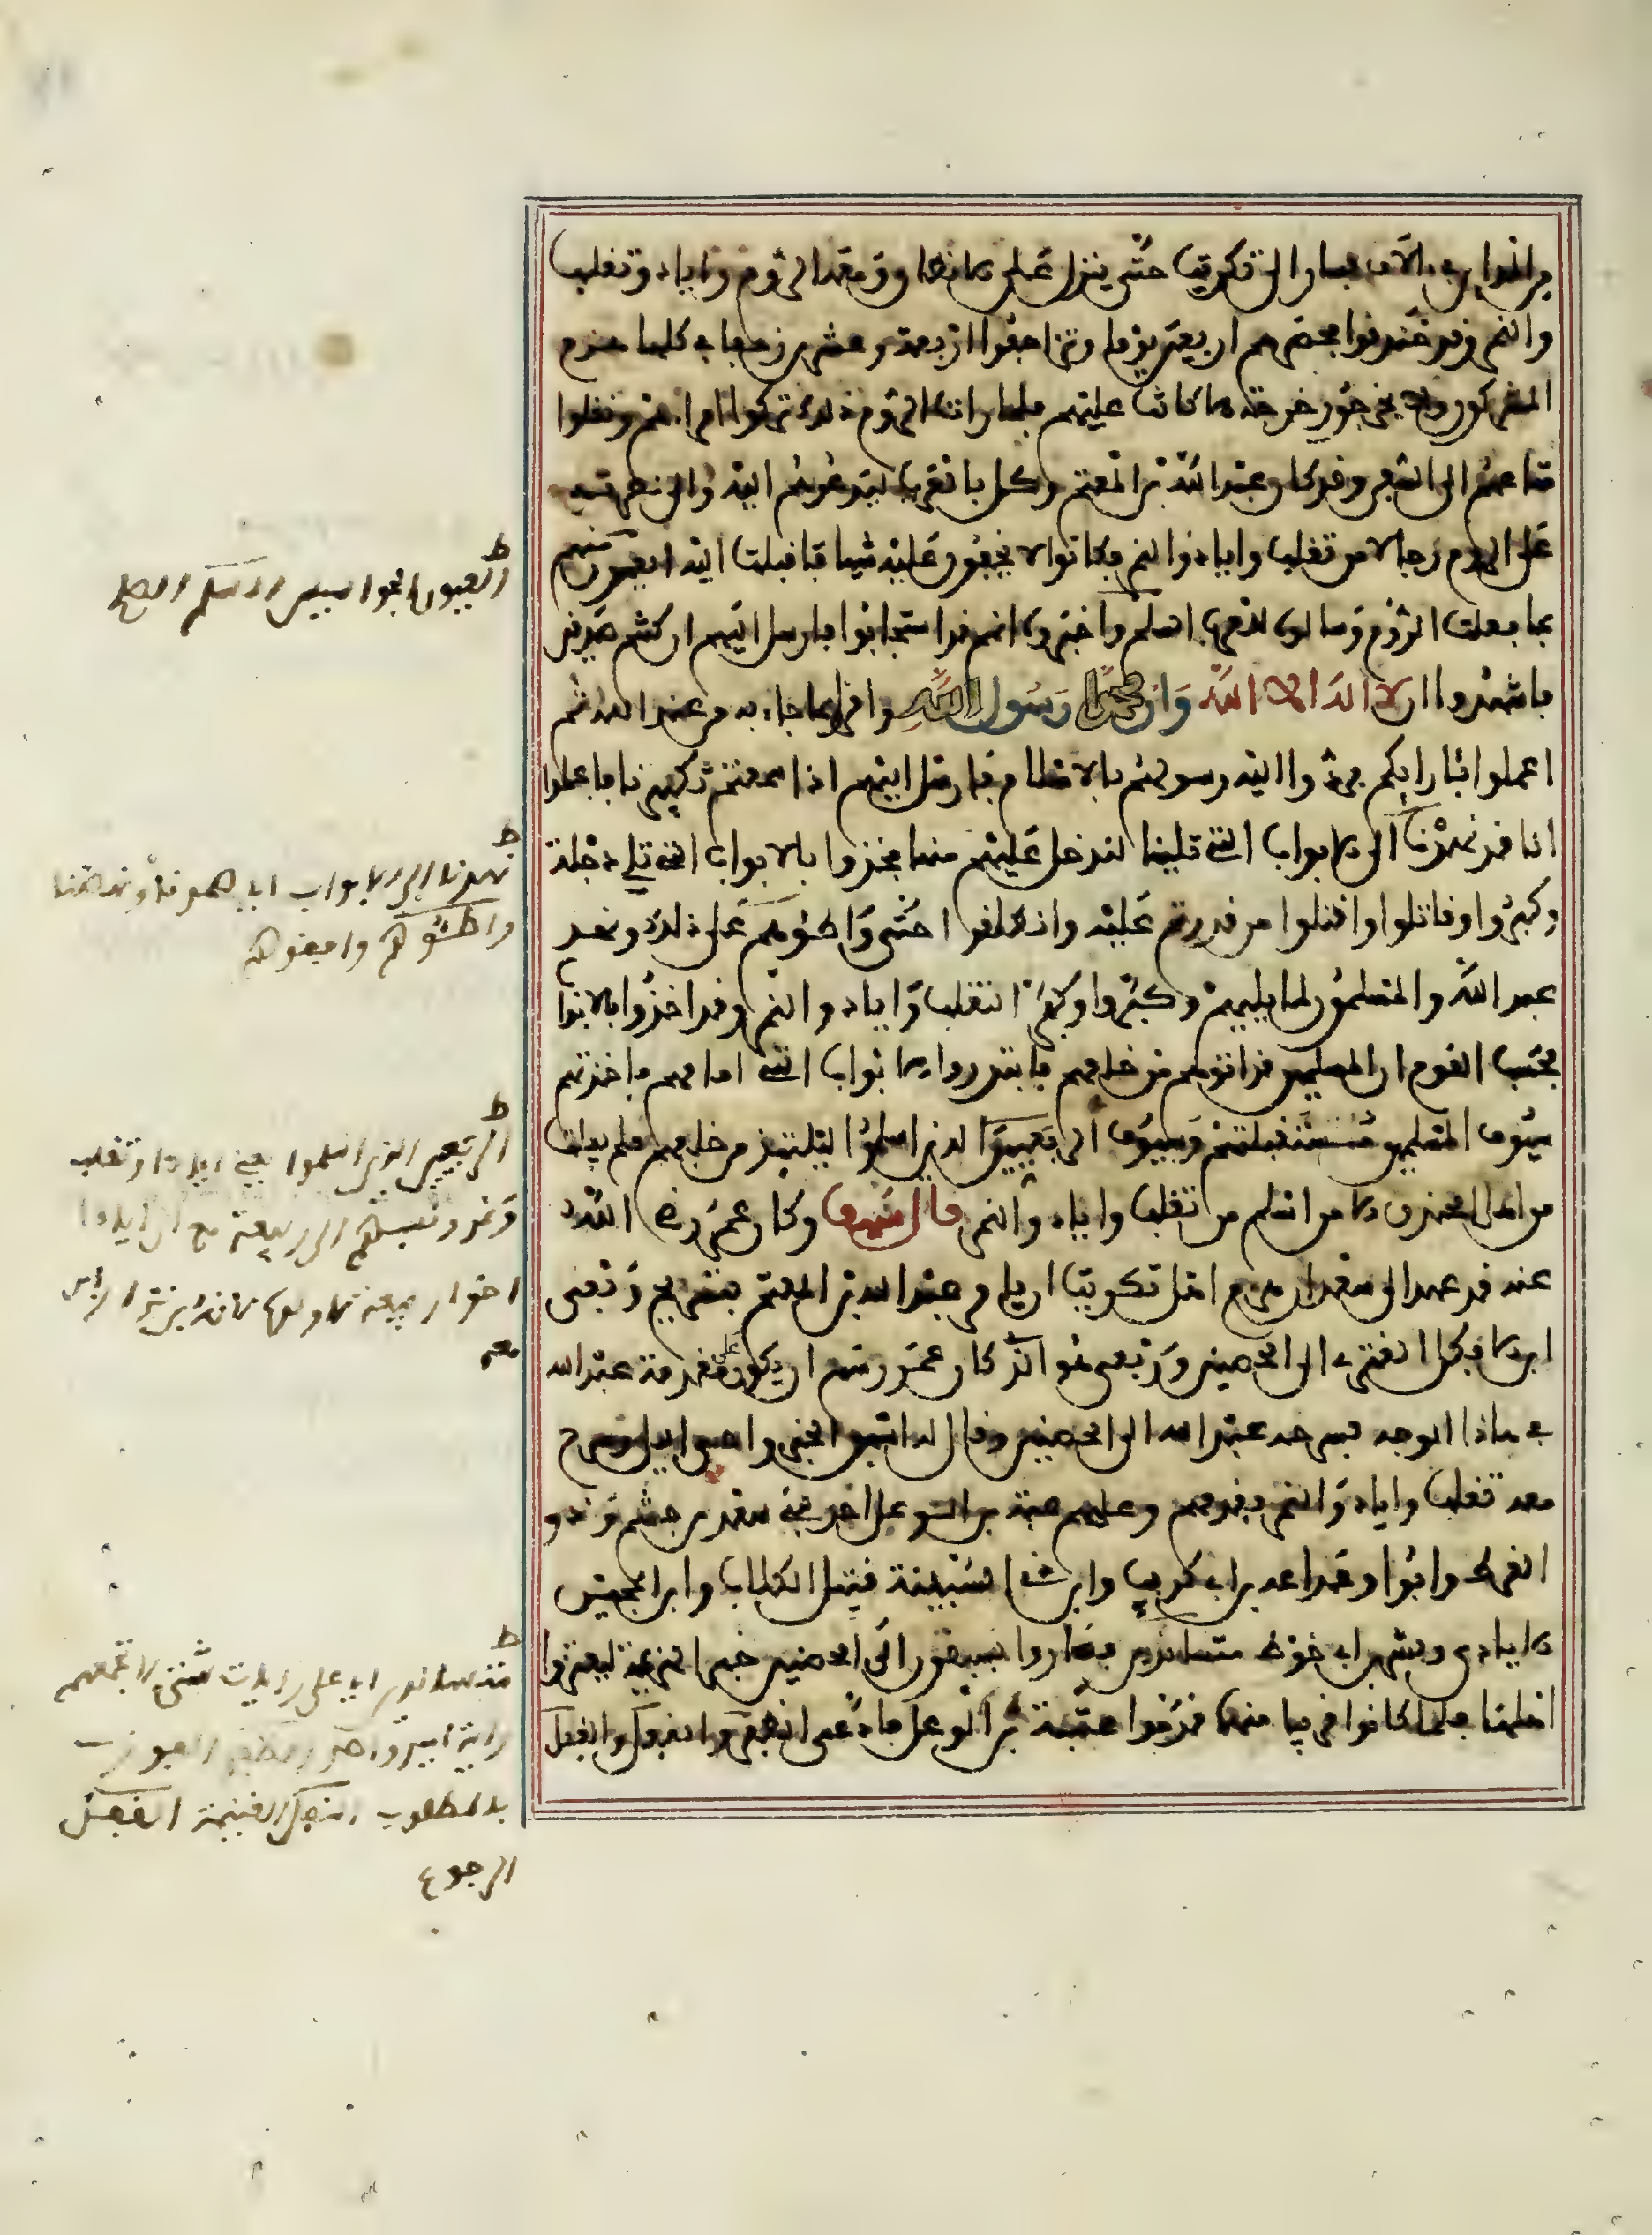 من المداين في الآف فسار الى تكريت حتى ينزل على الانطاق ومعه الروم واياد وتغلب
والنمر وقد خندقوا فحصرهم اربعين يوما وتزاحفوا اربعة وعشرين زحفا في كلها هزم
المشركون ولا يخرجون خرجة الا كانت عليهم فلما رات الروم ذلك تركوا امراءهم ونقلوا
متاعهم الى السفن وقد كان عبد الله بن المعتم وكل بالعرب ليدعوهم اليه والى نصرته
على الروم رجالا من تغلب واياد والنمر فكانوا لا يخفون عليه شيا فاقبلت اليه العيون منهم
بما فعلت الروم وسالوه للعرب السلم واخبروه انهم قد استجابوا فارسل اليهم ان كنتم صادقين
فاشهدوا ان لا اله الا الله وان محمدا رسول الله واقروا بما جاء به من عند الله ثم
اعلمونا رايكم فردوا اليه رسولهم بالاسلام فارسل اليهم اذا سمعتم تكبيرنا فاعلموا
انا قد نهدنا الى الابواب التي تلينا لندخل عليهم منها فخذوا بالابواب التي تلي دجلة
وكبروا وقاتلوا واقتلوا من قدرتم عليه وانطلقوا حتى واطئوهم على ذلك ونهد
عبد الله والمسلمون لما يليهم وكبروا وكبر تغلب واياد والنمر وقد اخذوا بالابواب
فحسب القوم ان المسلمين قد اتوهم من خلفهم فابتدروا الابواب التي امامهم فاخذتهم
سيوف المسلمين مستقبلتهم وسيوف الربعيين الذين اسلموا ليلتئذ من خلفهم فلم يفلت
من اهل الخندق الا من اسلم من تغلب واياد والنمر قال سيف وكان عمر رضي الله
عنه قد عهد الى سعد ان هزم اهل تكريت ان يامر عبد الله بن المعتم بتسريح ربعي
ابن الافكل العنزي الى الحصنين وربعي هو الذي كان عمر رسم ان يكون على مقدمة عبد الله
في هاذا الوجه فسرحه عبد الله الى الحصنين وقال له اسبق الخبر واسر اليل وسرح
معه تغلب واياد والنمر فقدمهم وعليهم عتبة بن الوعل احد بني سعد بن جشم وذو
القرط وابو وداعة بن ابي كرب وابن ذي السنينة قتيل الكلاب وابن الحجير
الايادي وبشر بن ابي حوط متساندين فصاروا يسبقون الى الحصنين خبر الهزيمة ليغتروا
اهلها فلما كانوا قريبا منها قدموا عتبة بن الوعل فادعى الظفر والنفل والقفل
ط
العيون الجواسيس السلم الصلح
ط
نهدنا الى الابواب اي صمدنا ونهضنا
واطئوهم وافقوهم
ط
الربعيين الذين اسلموا يعني ايادا وتغلب
ونمر ونسبهم الى ربيعة مع ان ايادا
اخوا ربيعة
معد
ط
متساندين اي على رايات شتى لا تجمعهم
راية امير واحد الظفر الفوز
بالمطلوب النفل الغنيمة القفل
الرجوع